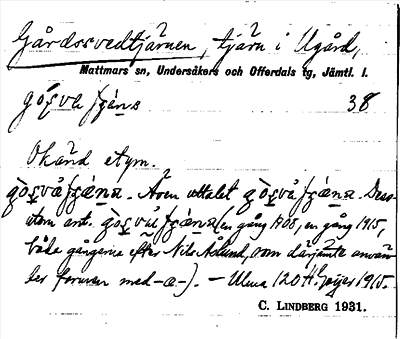 Gårdssvedtjärnen, tjärn i Ugård,
Mattmars sn, Undersåkers och Offerdals tg, Jämtl. l.
38
Okänd etym.
Även uttalet Dess-
utom ant. (en gång 1908, en gång 1915,
båda gångerna efter Nils Åslund, som därjämte använ-
der formen med -a-). — Ulma 120 H. Geijer 1915.
C. LINDBERG 1931.